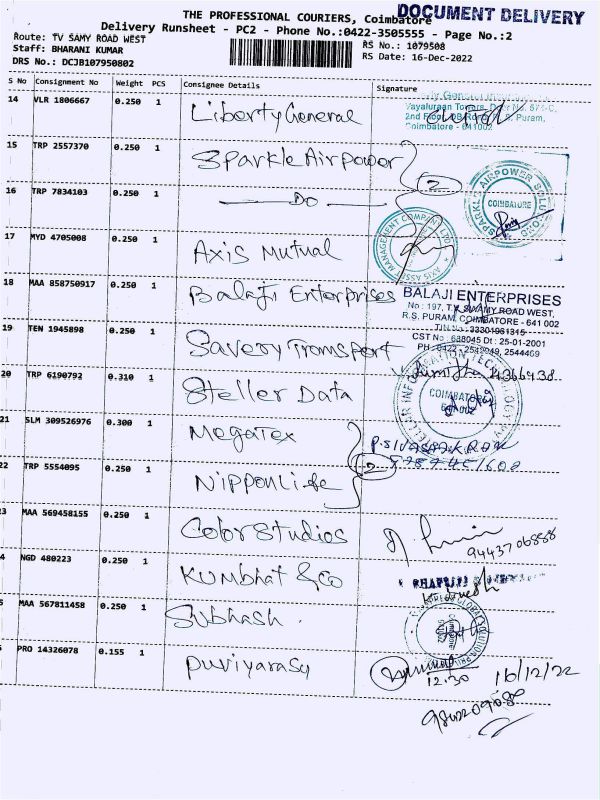 THE PROFESSIONAL COURIERS, Coimbatore
DOCUMENT DELIVERY
Delivery Runsheet - PC2 - Phone No.:0422-3505555 - Page No.:2
Route: TV SAMY ROAD WEST
Staff: BHARANI KUMAR
DRS No.: DCJB107950802
RS No.: 1079508
RS Date: 16-Dec-2022
S No Consignment No Weight PCS Consignee Details Signature
14 VLR 1806667 0.250 1 Liberty General
2nd Floor
Puram,
Coimbatore - 641002
15 TRP 2557370 0.250 1 Sparkle Airpower
2
SPARKLE AIRPOWER
COIMBATORE
16 TRP 7834103 0.250 1 Do
17 MYD 4705008 0.250 1 Axis Mutual
18 MAA 858750917 0.250 1 Balaji Enterprises
BALAJI ENTERPRISES
No: 197, T.V. SWAMY ROAD WEST,
R.S. PURAM, COIMBATORE - 641 002
TIN No: 33301961315
CST No: 688045 Dt: 25-01-2001
19 TEN 1945898 0.250 1 Savery Transport
20 TRP 6190792 0.310 1 Steller Data
COIMBATORE
641 002
21 SLM 309526976 0.300 1 Megatex
2
22 TRP 5554095 0.250 1 Nippon Life
3 MAA 569458155 0.250 1 Color Studios
9443706888
4 NGD 480223 0.250 1 Kumbhat & Co
5 MAA 567811458 0.250 1 Subhash.
PRO 14326078 0.155 1 Puviyarasy
12.30 16/12/22